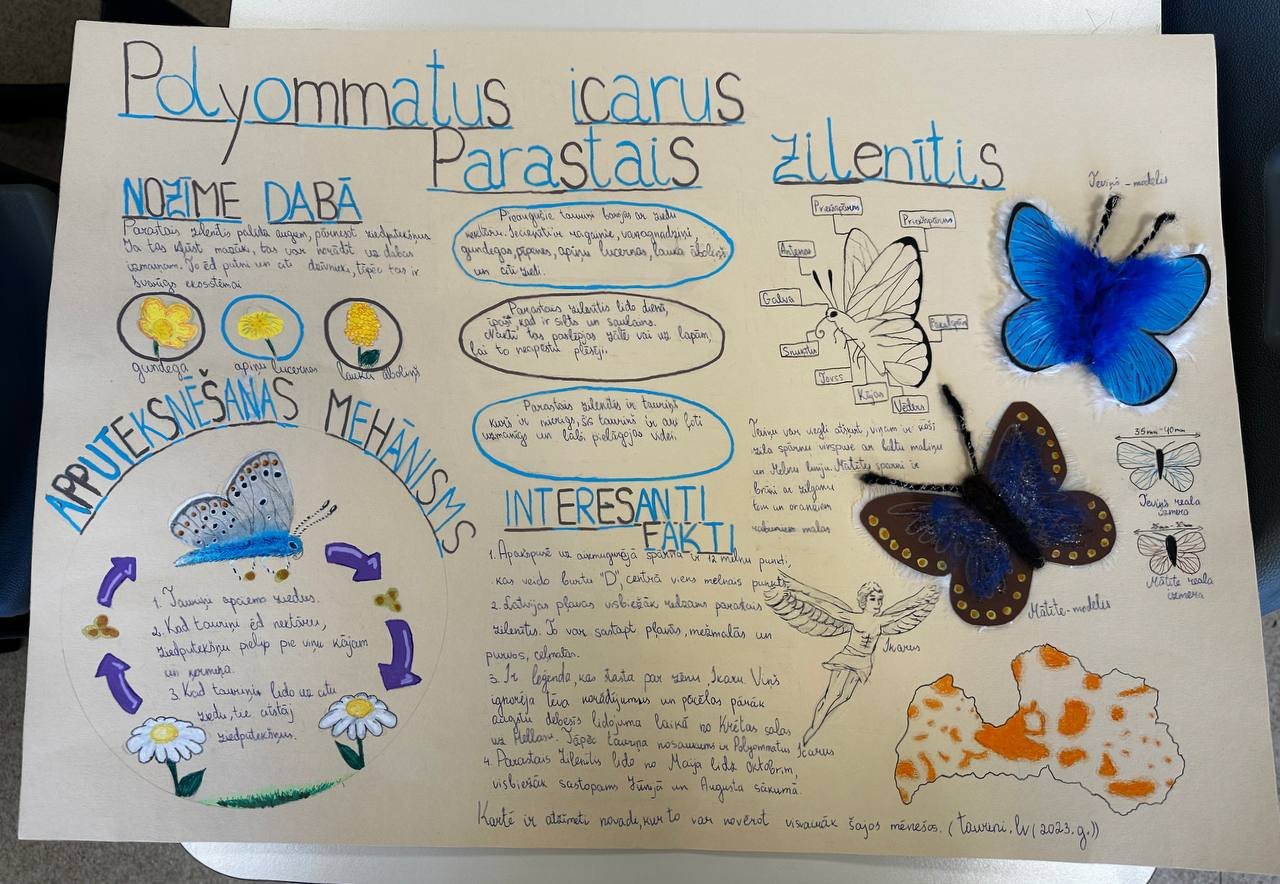 Polyommatus icarus
Parastais zilenītis
NOZĪME DABĀ
Parastais zilenītis palīdz augiem, pārnesot ziedputekšņus.
Ja tas kļūst mazāk, tas var norādīt uz dabas
izmaiņām. To ēd putni un citi dzīvnieki, tāpēc tas ir
svarīgs ekosistēmai
gundega
apiņu lucernas
lauka āboliņš
Pieaugušie tauriņi barojas ar ziedu
nektāru. Iecienīti ir raganie, vanagnadziņi,
gundegas, pīpenes, apiņu lucernas, lauka āboliņš
un citi ziedi.
Parastais zilenītis lido dienā,
īpaši kad ir silts un saulains.
Naktī tas paslēpjas zālē vai uz lapām,
lai to neapēstu plēsēji.
Parastais zilenītis ir tauriņš
kurš ir mierīgs, šis tauriņš ir arī ļoti
uzmanīgs un labi pielāgojas videi.
APPUTEKSNĒŠANAS MEHĀNISMS
1. Tauriņi apciemo ziedus.
2. Kad tauriņi ēd nektāru,
ziedputekšņi pielīp pie viņu kājām
un ķermeņa.
3. Kad tauriņi lido uz citu
ziedu, tie atstāj
ziedputekšņus.
INTERESANTI
FAKTI
1. Apakšpusē uz aizmugurējā spārna ir 12 melnu punkti,
kas veido burtu "D", centrā viens melnais punkts.
2. Latvijas pļavās visbiežāk redzams parastais
zilenītis. To var sastapt pļavās, mežmalās un
purvos, ceļmalās.
3. Ir leģenda, kas stāsta par zēnu Ikaru. Viņš
ignorēja tēva norādījumus un pacēlās pārāk
augstu debesīs lidojuma laikā no Krētas salas
uz Hellasu. Tāpēc tauriņa nosaukums ir Polyommatus Icarus
4. Parastais Zilenītis lido no Maija līdz Oktobrim,
visbiežāk sastopams Jūnijā un Augusta sākumā.
Kartē ir atzīmēti novadi, kur to var novērot visvairāk šajos mēnešos. (taurini.lv (2023.g.))
Ikarus
Priekšspārns
Priekšspārns
Antenas
Galva
Snuķītis
Torss
Kājas
Vēders
Tēviņu var viegli atšķirt, viņam ir koši
zila spārnu virspuse ar baltu maliņu
un Melnu līniju. Mātītes spārni ir
brūni ar zilganu
toni un oranžiem
raibumiem malās
Tēviņš-modelis
Mātīte-modelis
35mm-40mm
Tēviņš reāla
izmēra
Mātīte reāla
izmēra